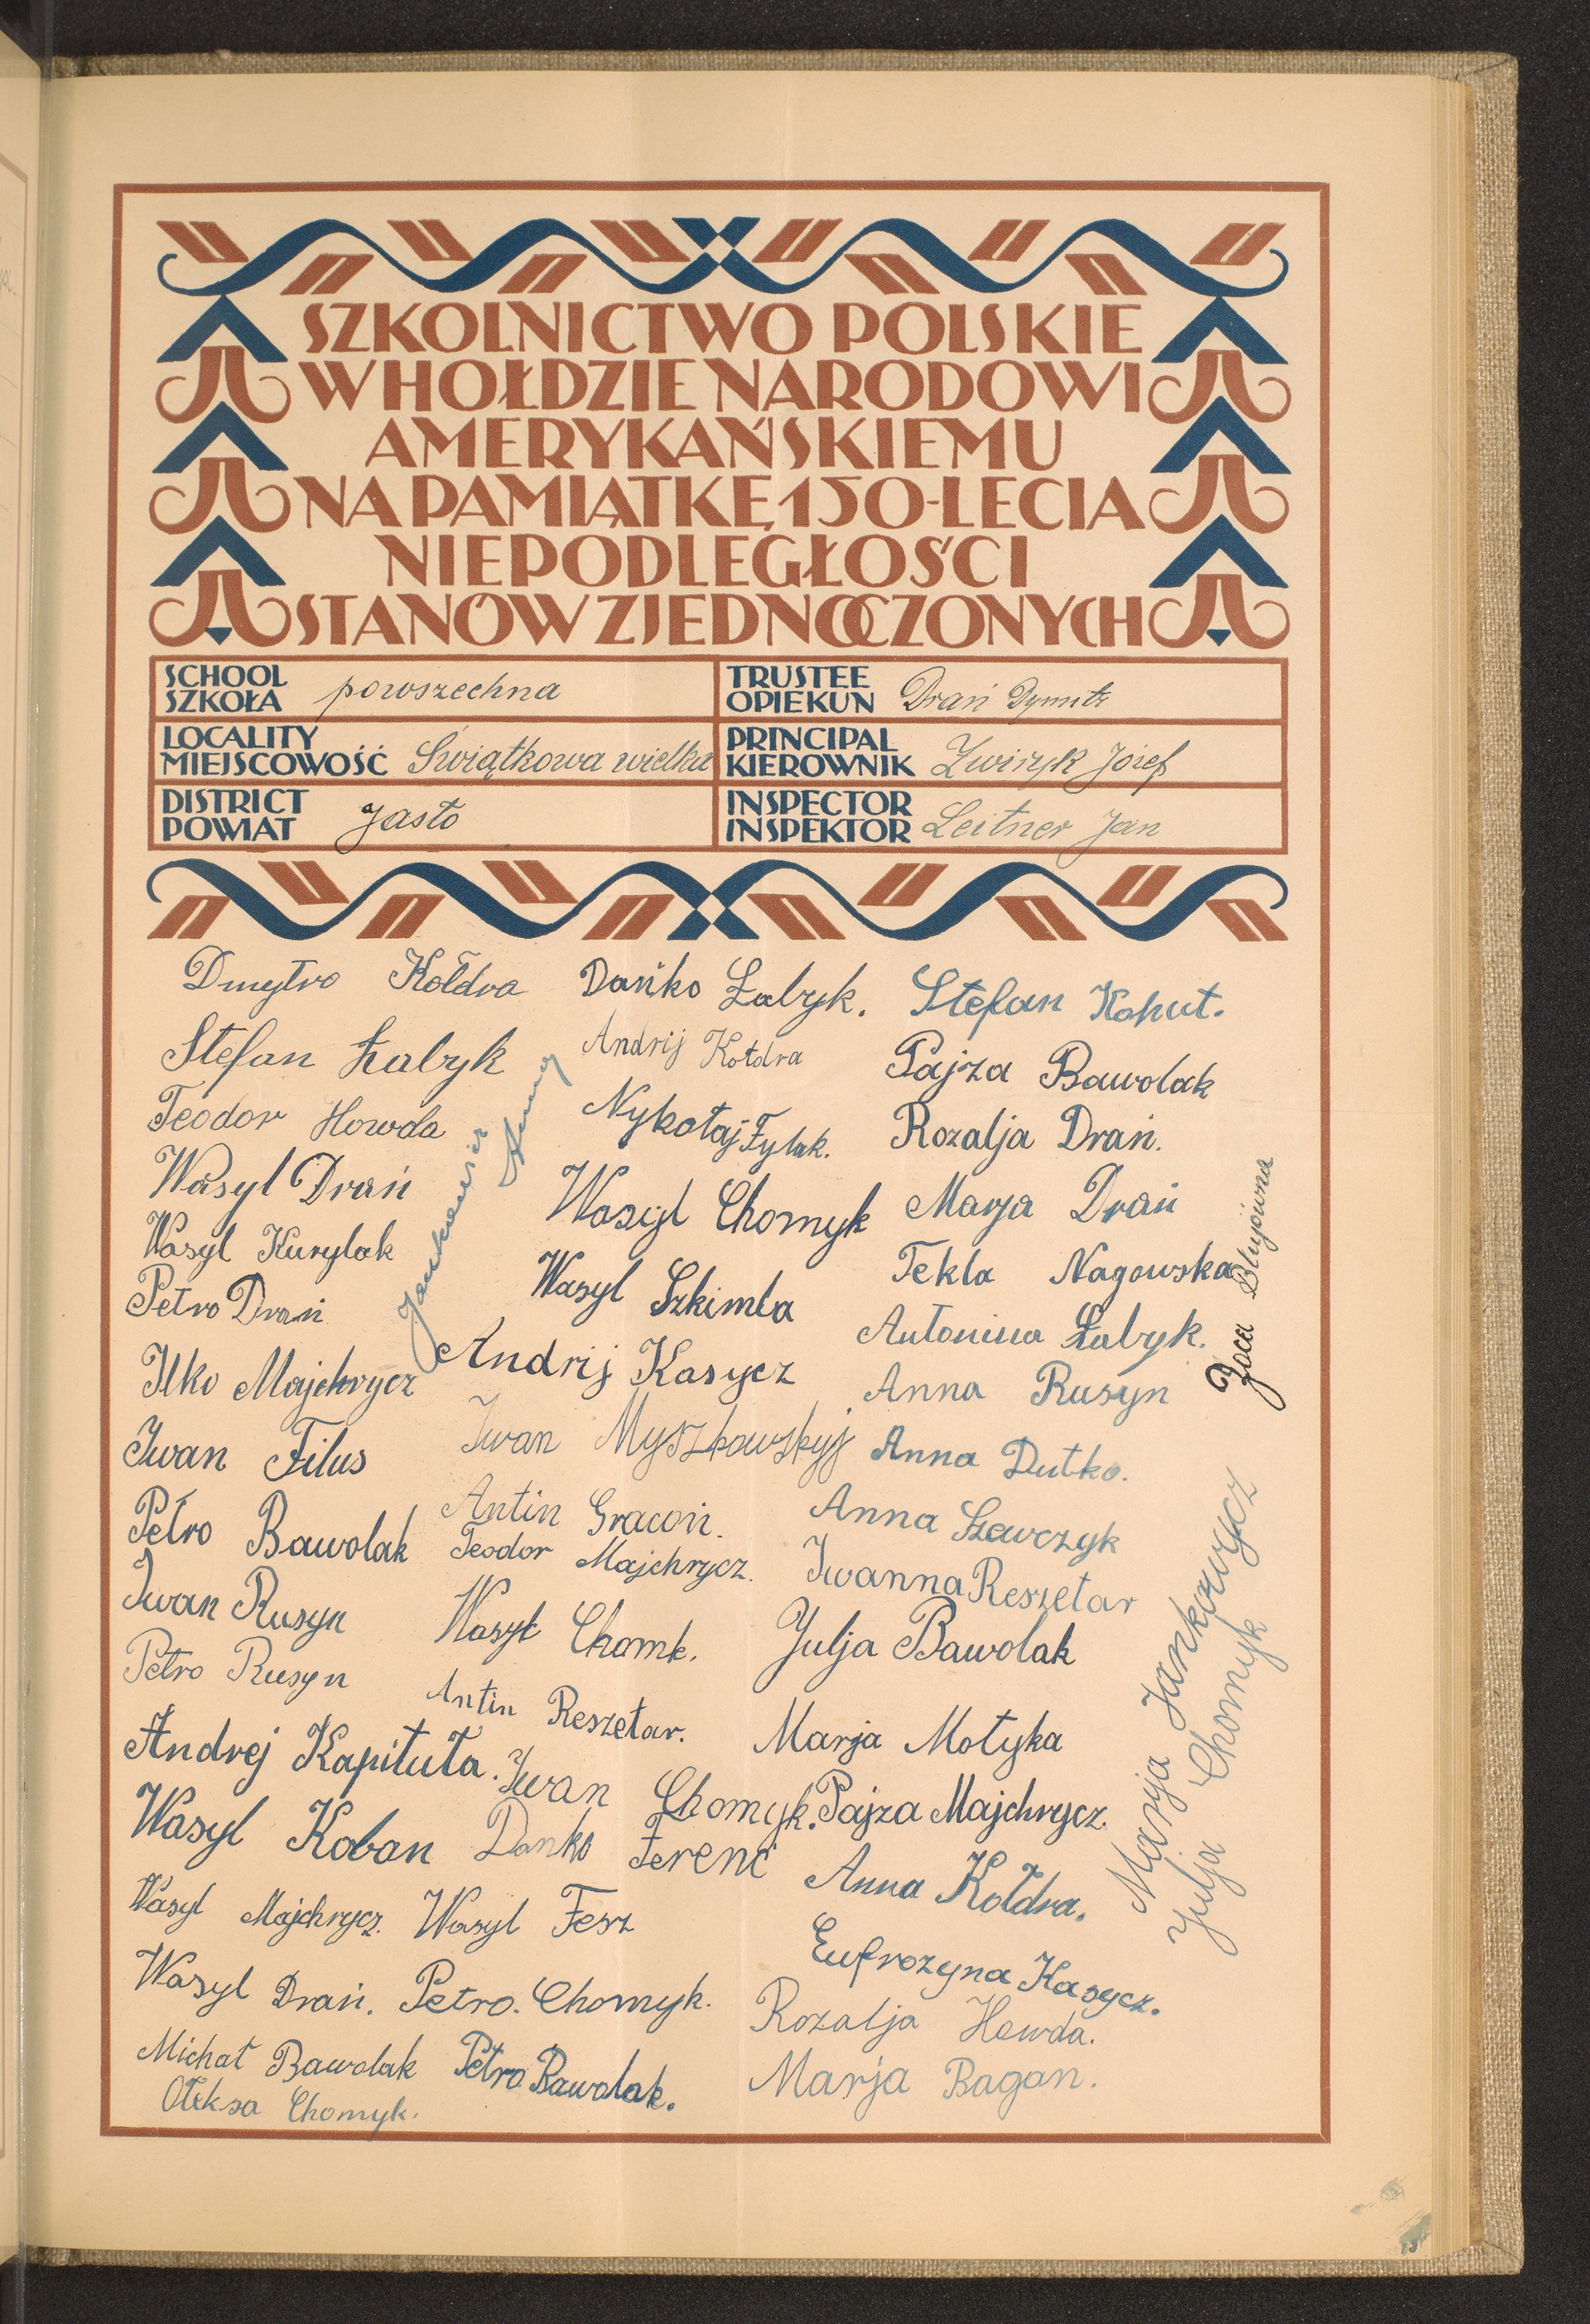 SZKOLNICTWO POLSKIE
W HOŁDZIE NARODOWI
AMERYKAŃSKIEMU
NA PAMIĄTKĘ 150-LECIA
NIEPODLEGŁOŚCI
STANÓW ZJEDNOCZONYCH
SCHOOL
SZKOŁA powszechna
TRUSTEE
OPIEKUN Drań Dymitr
LOCALITY
MIEJSCOWOŚĆ Świątkowa wielka
PRINCIPAL
KIEROWNIK Zwirzyk Józef
DISTRICT
POWIAT Jasło
INSPECTOR
INSPEKTOR Leitner Jan
Dmytro Kołdra
Stefan Łabyk
Teodor Howda
Wasyl Drań
Wasyl Kurylak
Petro Drań
Ilko Majchrycz
Iwan Filus
Petro Bawolak
Iwan Rusyn
Petro Rusyn
Andrej Kapituła.
Wasyl Koban
Wasyl Majchrycz.
Wasyl Drań.
Michał Bawolak
Ołeksa Chomyk.
Dańko Łabyk.
Andrij Kołdra
Nykołaj Fylak.
Wasyl Chomyk
Wasyl Szkimla
Andrij Kasycz
Iwan Myszkowskyj
Antin Gracoń.
Teodor Majchrycz.
Wasył Chomk.
Antin Reszetar.
Iwan Chomyk.
Danko Ferenc
Wasyl Fesz
Petro. Chomyk.
Petro Bawolak.
Stefan Kohut.
Pajza Bawolak
Rozalja Drań.
Marja Drań
Tekla Nagowska
Antonina Łabyk.
Anna Rusyn
Anna Dutko.
Anna Szewczyk
Iwanna Reszetar
Julja Bawolak
Marja Motyka
Pajza Majchrycz.
Anna Kołdra.
Eufrozyna Kasycz.
Rozalja Howda.
Marja Bagan.
Marja Jankowycz
Julja Chomyk